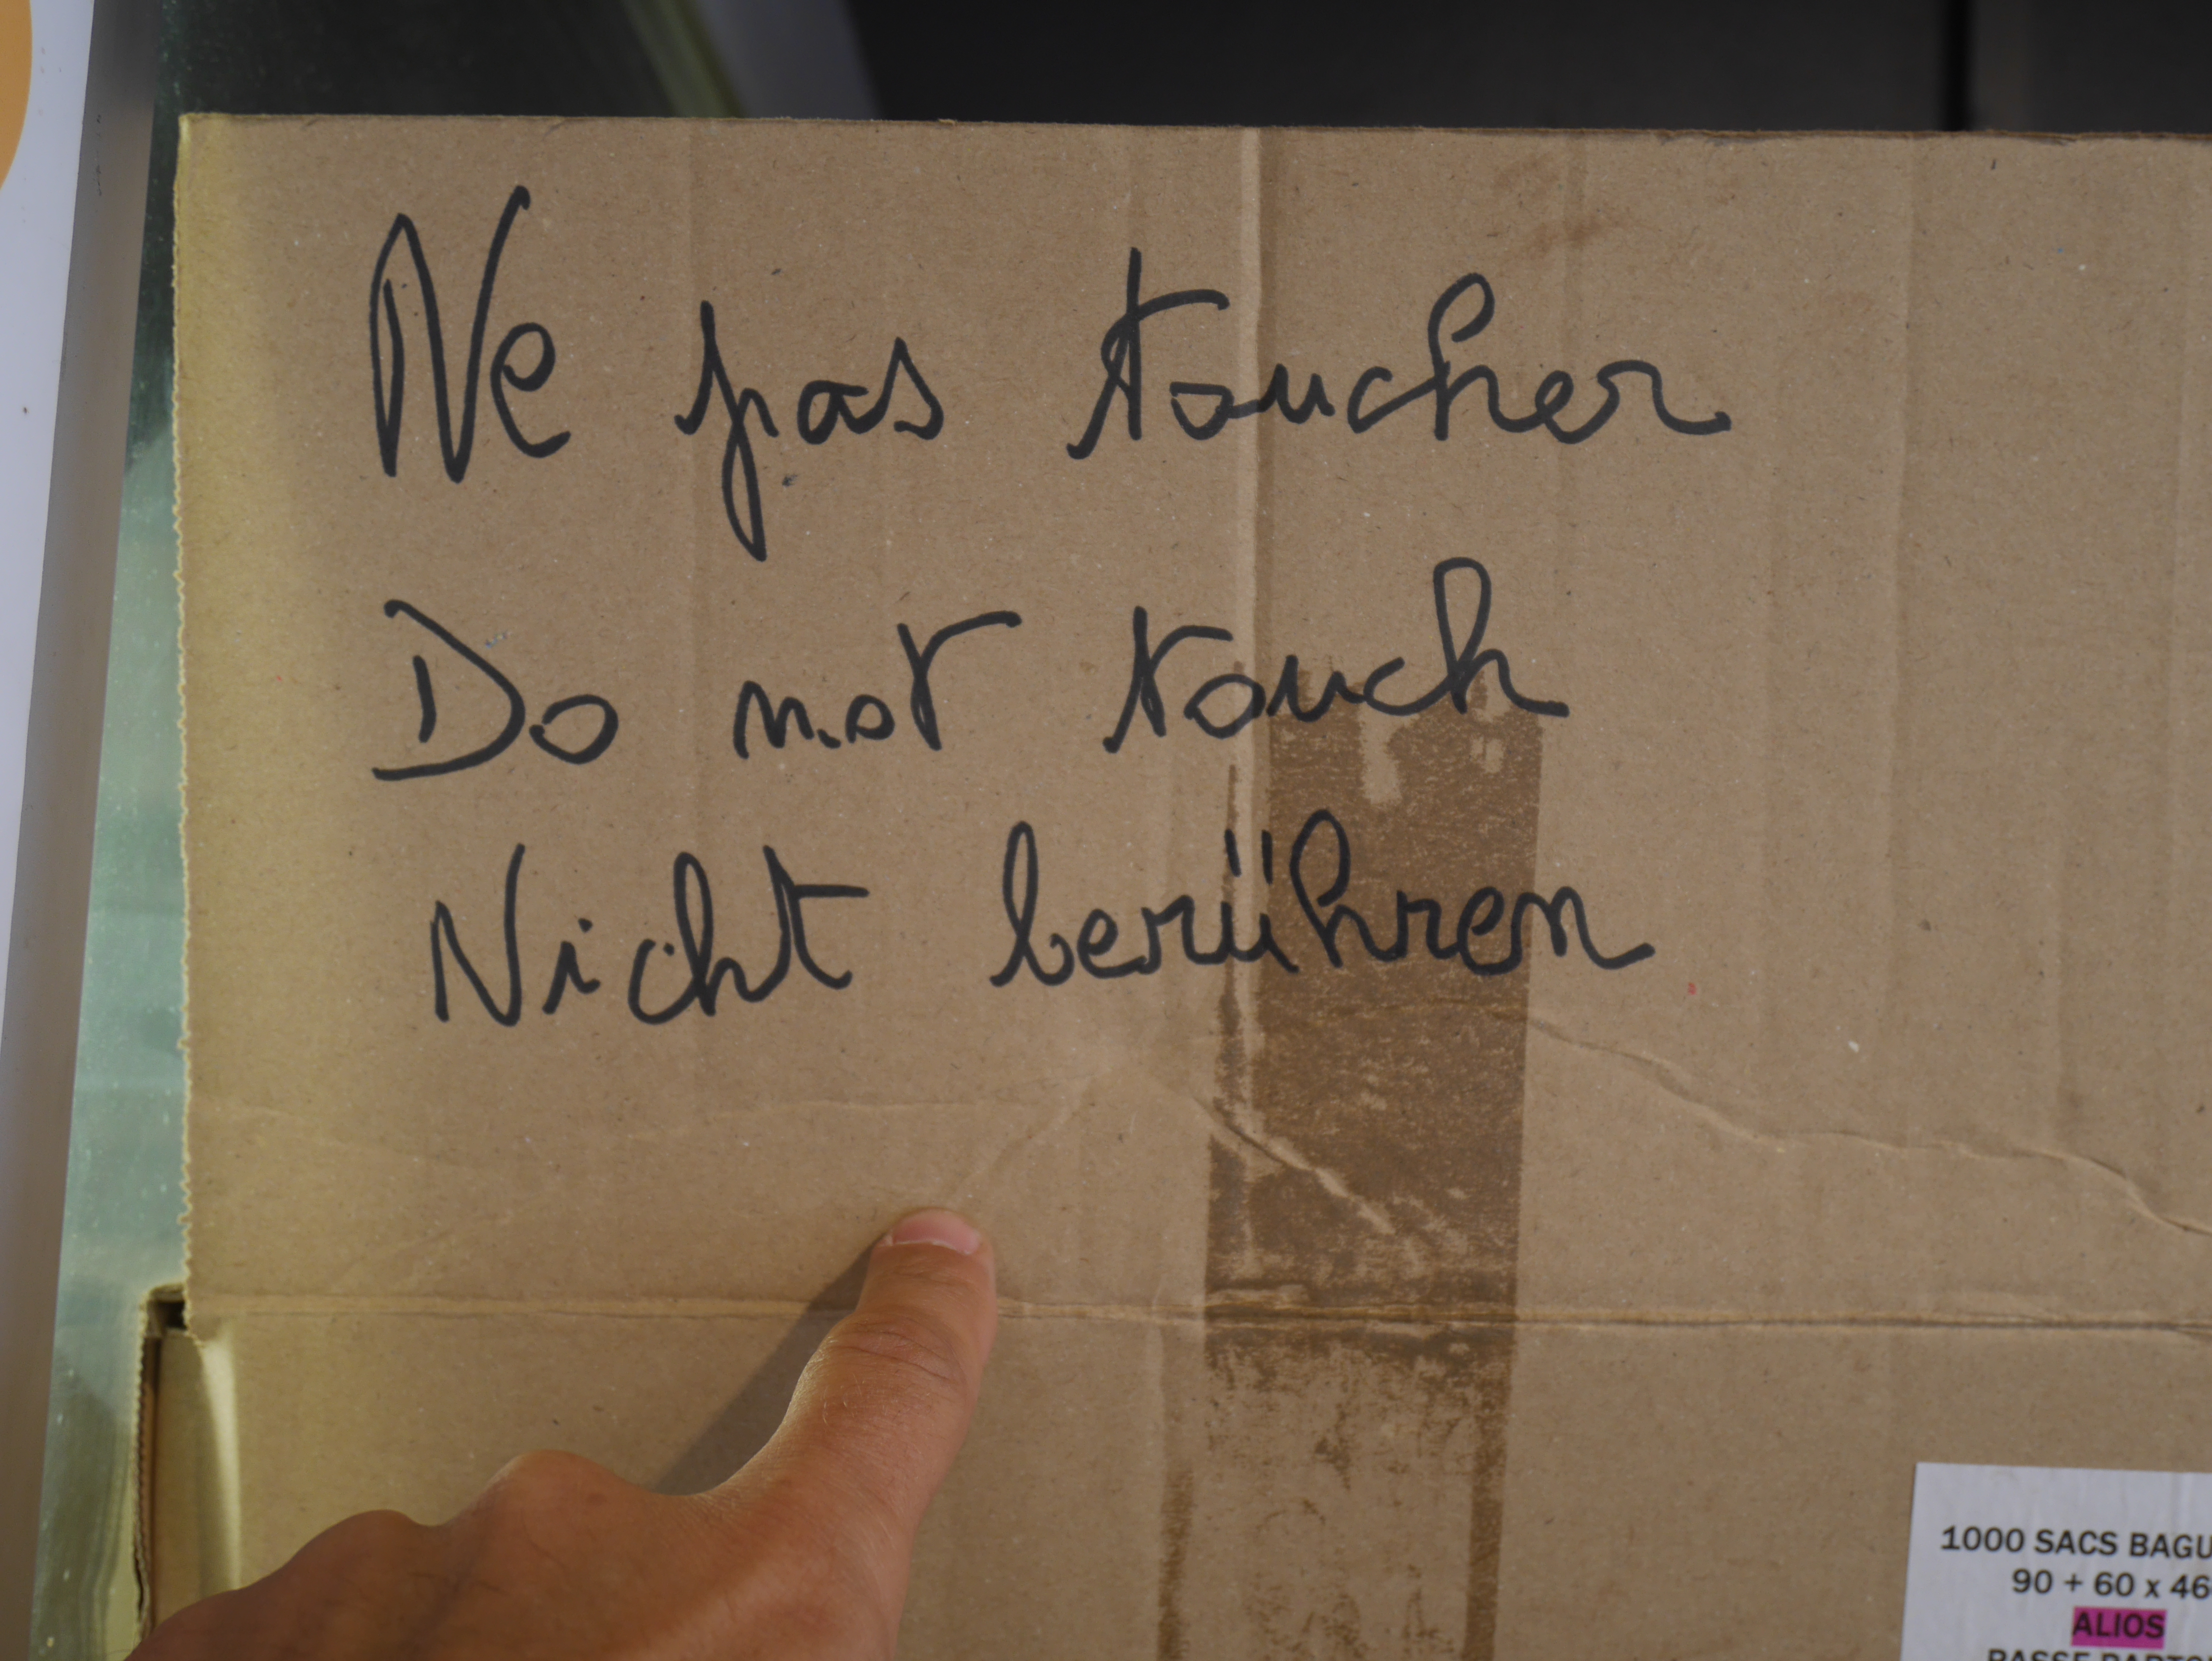 Ne pas toucher
Do not touch
Nicht berühren
1000 SACS BAGU
90 + 60 x 46
ALIOS